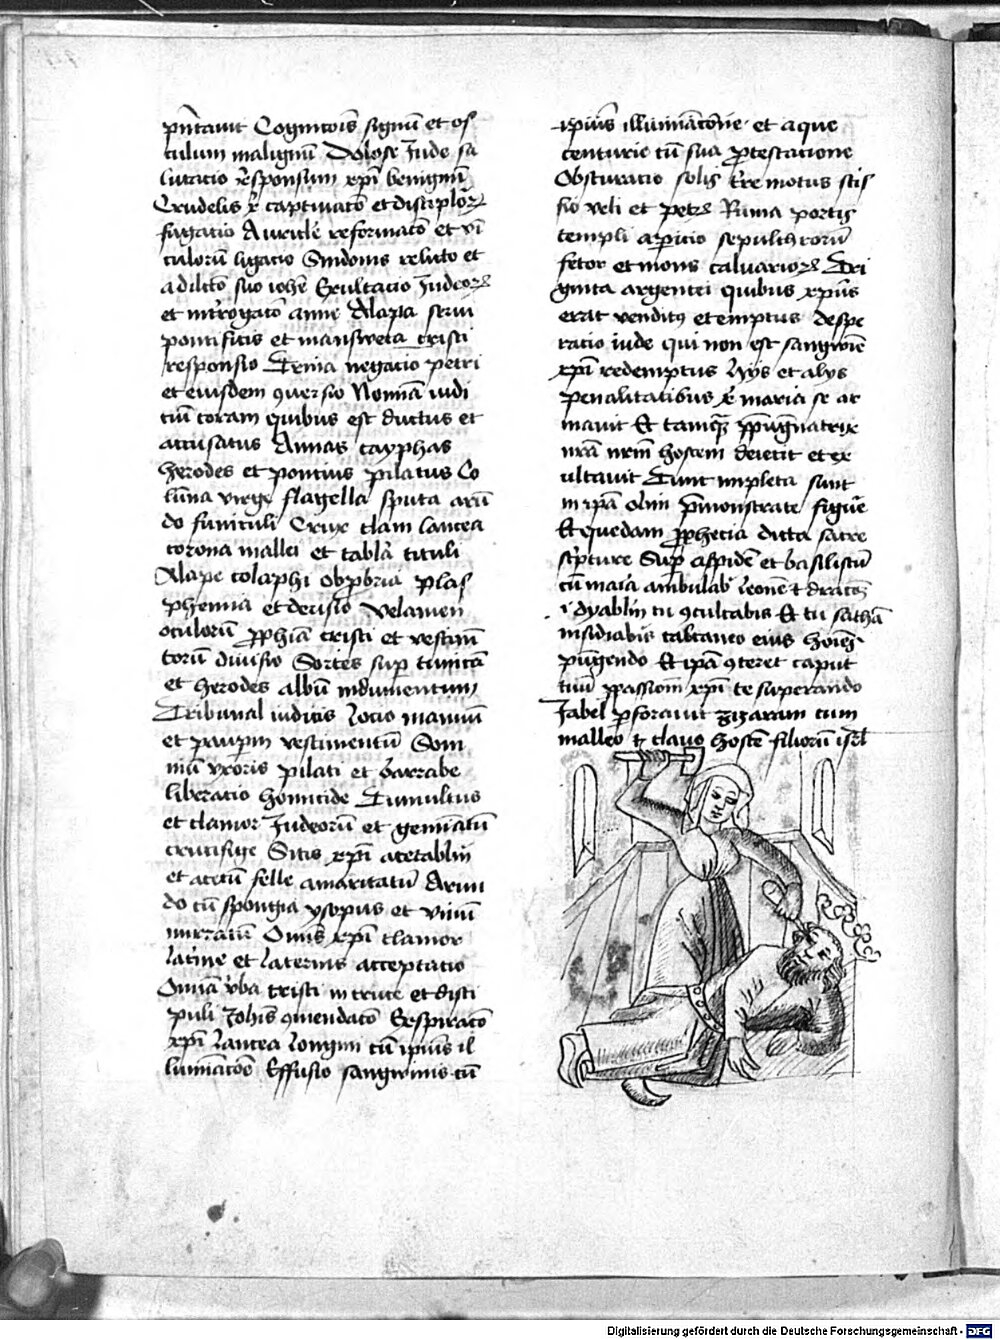 pn̄tauit Cognic̄ois signū et os
culum malignū Dolose Jude sa
lutacio r̄esponsum xp̄i benignū
Crudelis xp̄i captiuac̄o et discip̄lorꝫ
fugacio Auricl̄e reformac̄o et vi
culorū ligacio Sindonis relic̄to et
a dilc̄to suo ioh̄e Exultacio Judeorꝫ
et int̄rogac̄o anne Alapa serui
pontificis et mansweta cristi
responsio Trina negacio petri
et eiusdem ꝯuersio Nomīa iudi
cū coram quibus est ductus et
accusatus Annas cayphas
herodes et pontius pilatus Co
lūna virge flagella sputa arū
do funiculi Crux clam lancea
corona mallei et tabl̄a tituli
Alape colaphi obꝓbria plas
phemia et derisio Velamen
oculorū ꝓph̄ia cristi et vestim̄
torū diuisio Sortes sup̄ tunicā
et herodes albū indumentum
Tribunal iudicis Locio manuū
et paup̄m vestimentū Som
niū vxoris pilati et barrabe
liberacio homicide Tumultus
et clamor Judeorū et gemīatū
crucifige Sitis xp̄i acerabl̄in
et acetū felle amaricatū Arun
do cū spongia ysopus et vinū
mirratū Om̄is xp̄i clamor
latine et laternis acceptacio
Omīa v̄ba cristi in cruce et disci
puli Joh̄is ꝯmendac̄o Exspirac̄o
xp̄i Lancea Longini cū ip̄ius il
lumīac̄oe Effusio sangwinis cū
ip̄ius illumīac̄oīe et aque
centurie cū sua ꝓtestacione
Obscuracio solis terremotus scis
sio veli et petrꝫ Ruina portis
templi apicio sepulchrorū
fetor et mons caluariorꝫ Tri
ginta argentei quibus xp̄us
erat venditꝰ et emptus despe
racio iude qui non est sangwīe
xp̄i redemptus Hijs et alijs
penalitatibus xp̄i maria se ar
mauit Et tamq̄ꝫ ꝓpugnatrix
nr̄a nr̄m hostem deiecit et ex
ultauit Tunc impleta sunt
in ip̄a olim p̄monstrate figure
Et quedam ꝓphecia dicta sacre
scripture Sup̄ aspidē et basiliscū
tū maīa ambulabꝰ leonē ⁊ dracōꝫ
i dyablm̄ tu ꝯculcabis Et tu sathā
insidiabis calcaneo eius hoiēꝫ
pūgendo Et ipā ꝯteret caput
tuū ꝑ passionē xp̄i te superando
Jabel ꝑforauit zizaram cum
malleo ⁊ clauo hostē filiorū isrl̄
Digitalisierung gefördert durch die Deutsche Forschungsgemeinschaft - DFG